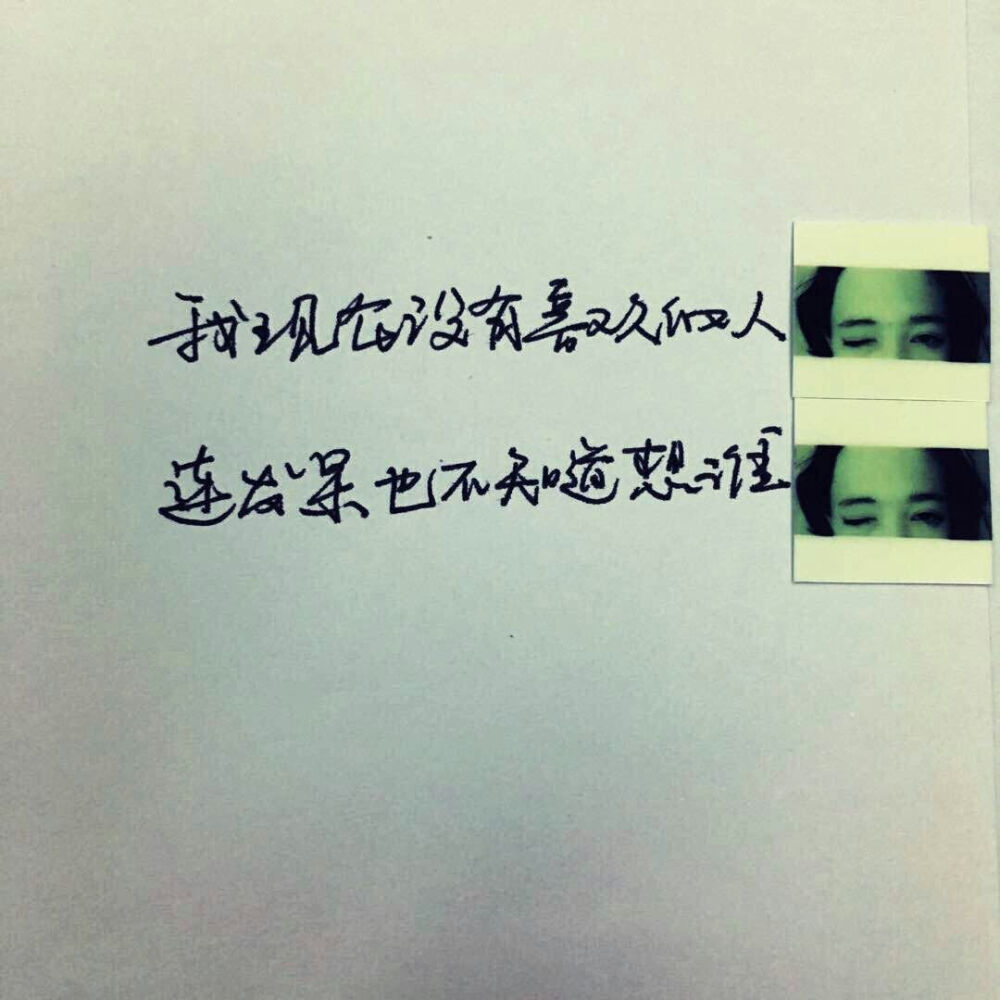 我现在没有喜欢的人
连发呆也不知道想谁